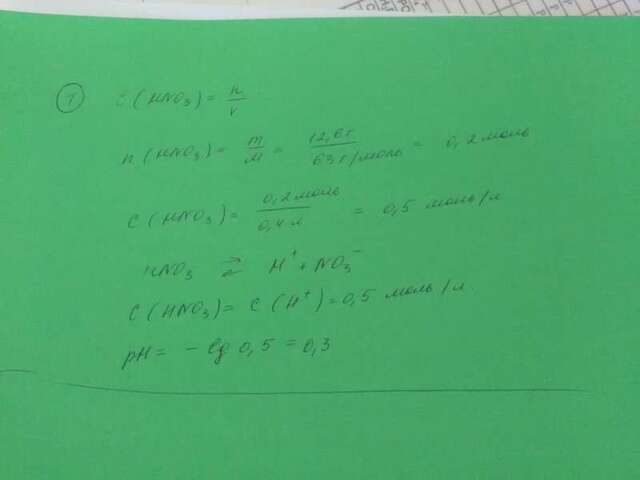 1
C (HNO₃) = n/V
n (HNO₃) = m/M = 12,6 г / 63 г/моль = 0,2 моль
C (HNO₃) = 0,2 моль / 0,4 л = 0,5 моль/л
HNO₃ ⇄ H⁺ + NO₃⁻
C (HNO₃) = C (H⁺) = 0,5 моль/л
pH = - lg 0,5 = 0,3